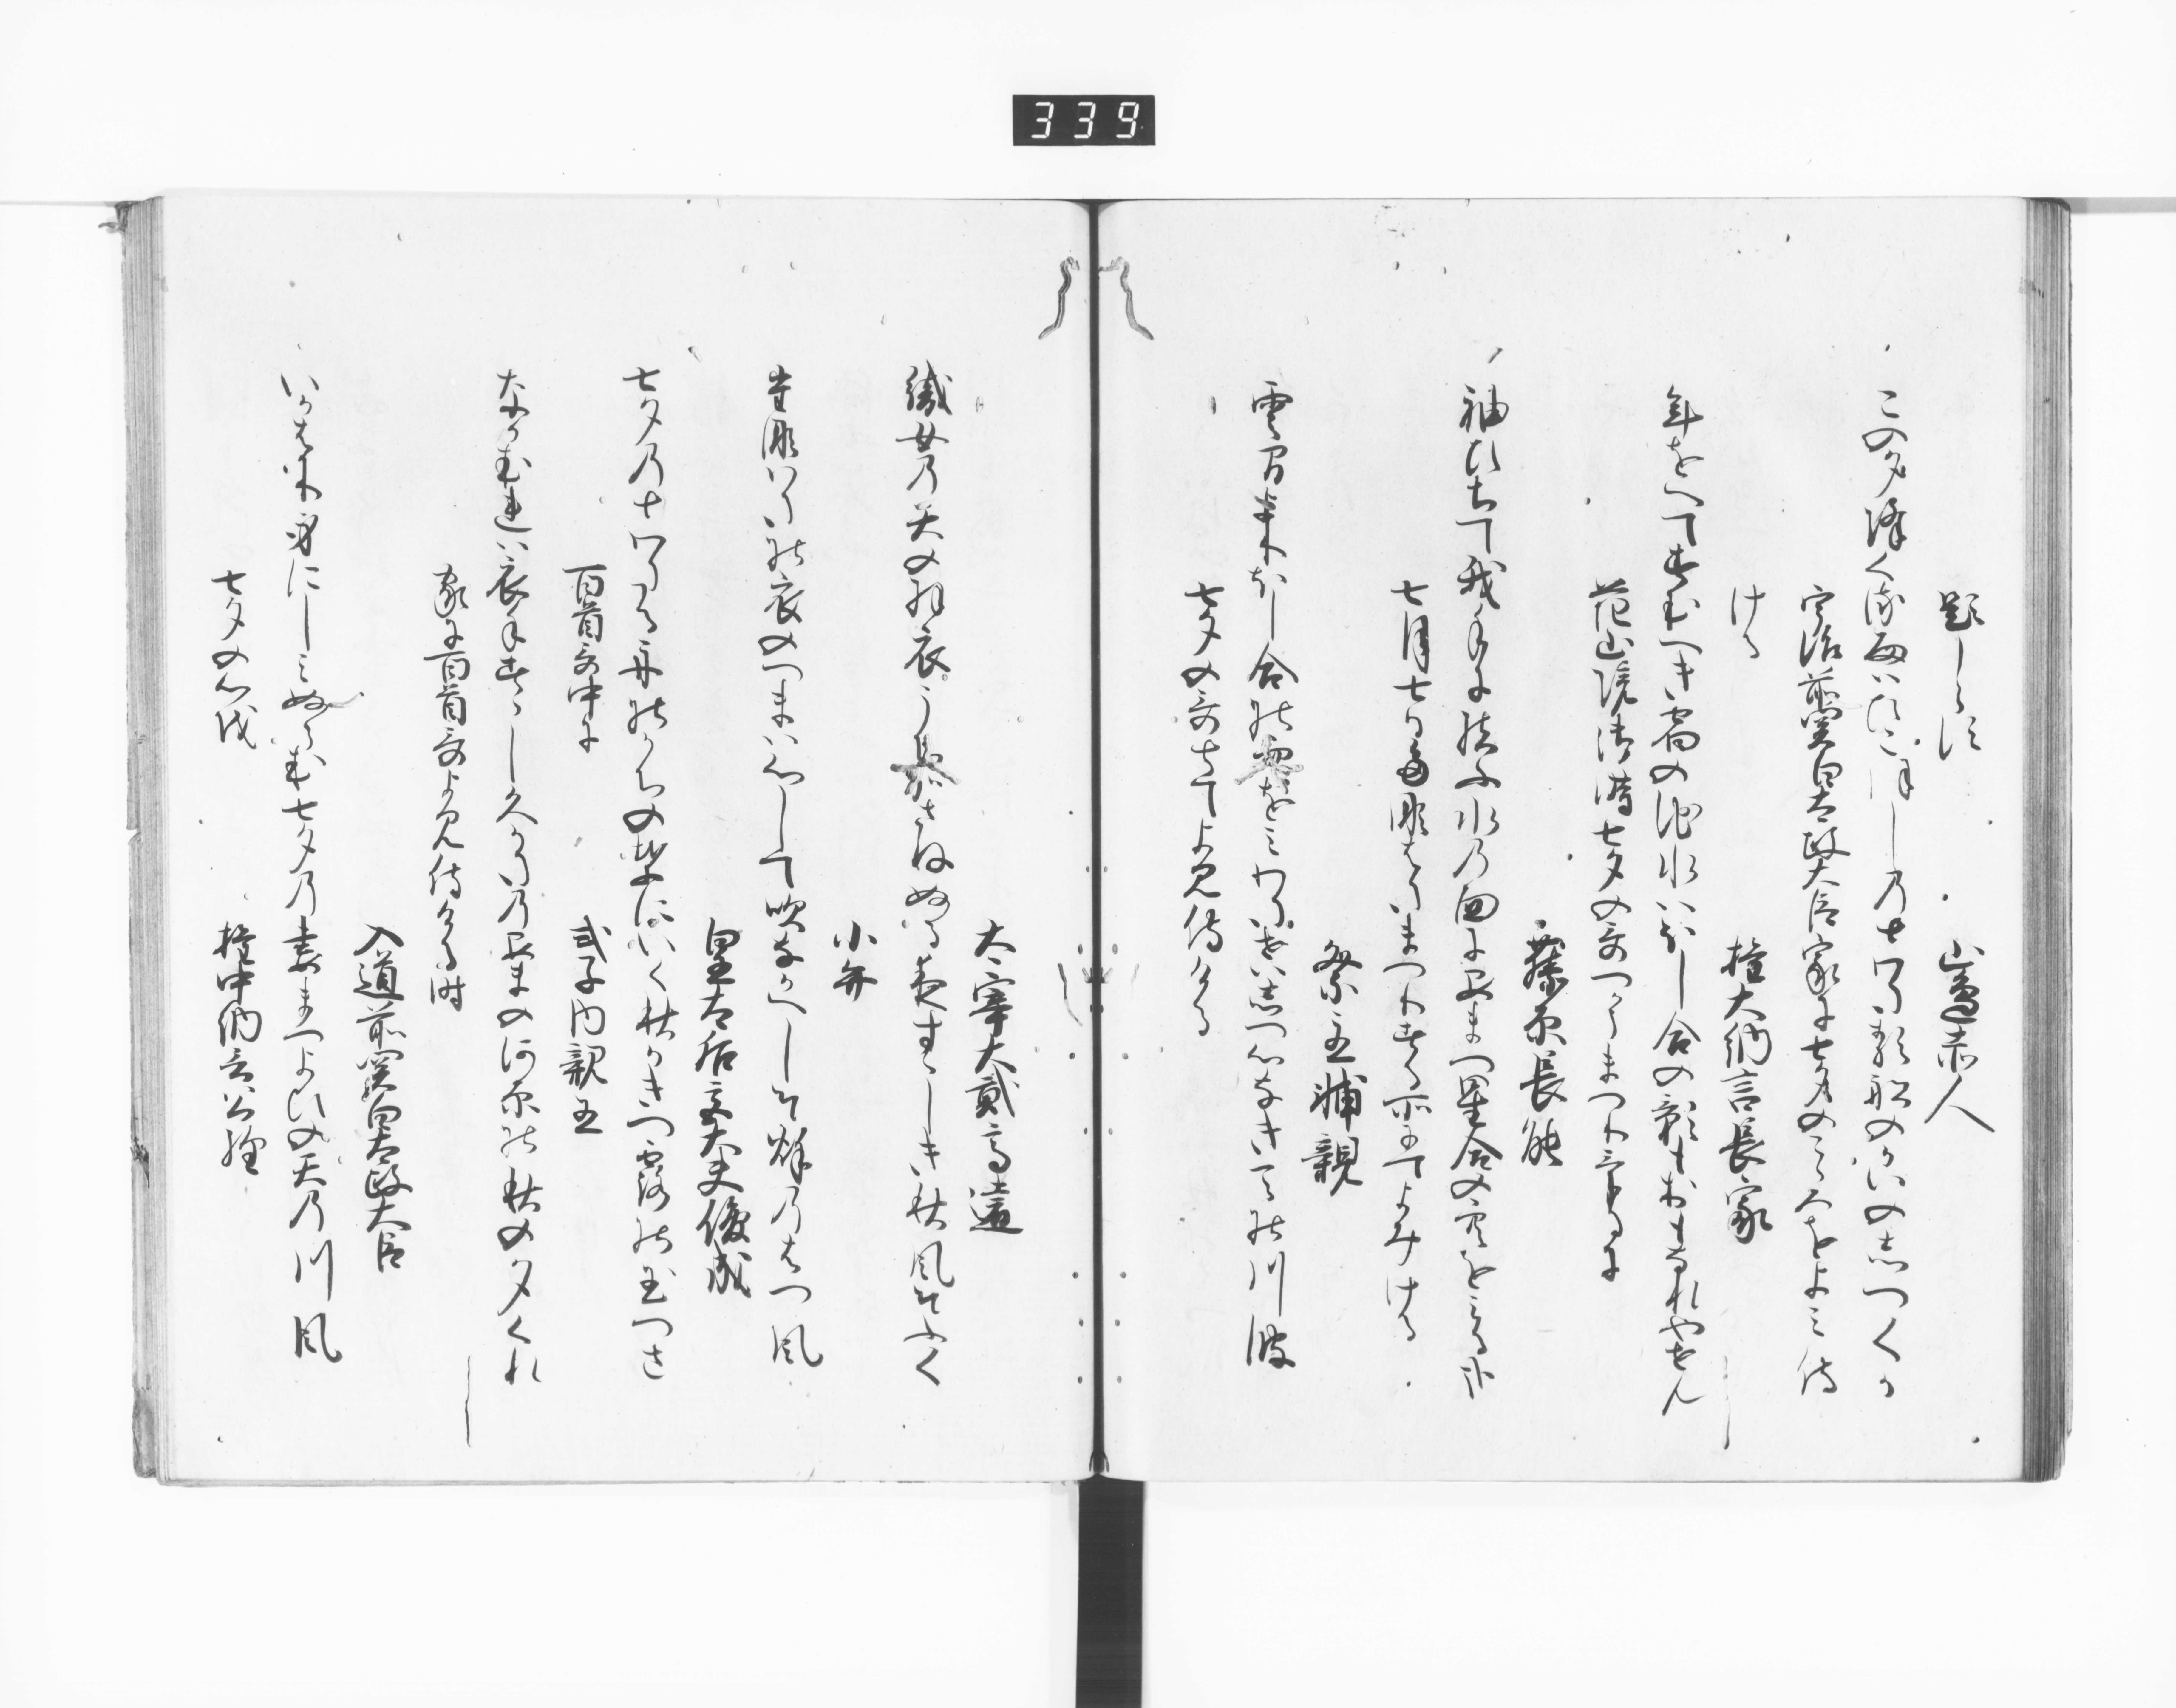 339
題しらす　山邊赤人
この夕降くる雨はひこほしのとわたる船のかいのしつくか
宇治前関白太政大臣家に七夕のこゝろをよみ侍
ける　権大納言長家
年をへてすむへき宿の池水はほし合の影もおもなれやせん
花山院御時七夕の哥つかうまつりけるに
藤原長能
袖ひちて我手に結ふ水の面にあまつ星合の空をみる哉
七月七日七夕まつりする所にてよみける
祭主輔親
雲間よりほし合の空をみわたせはしつ心なき天の川波
七夕の哥とてよみ侍ける
太宰大貳高遠
織女の天の羽衣うちかさねぬる夜すゝしき秋風そふく
小弁
七夕は今や別るゝ衣のつまは心して吹なかへしそ秋のはつ風
皇太后宮大夫俊成
七夕のとわたる舟のかちの葉にいく秋かきつ露の玉つさ
百首哥中に　式子内親王
なかむれは衣手すゝし久かたのあまの河原の秋の夕くれ
家に百首哥よみ侍ける時
入道前関白太政大臣
いか許身にしみぬらむ七夕の妻まつよひの天の川風
七夕の心を　権中納言公経